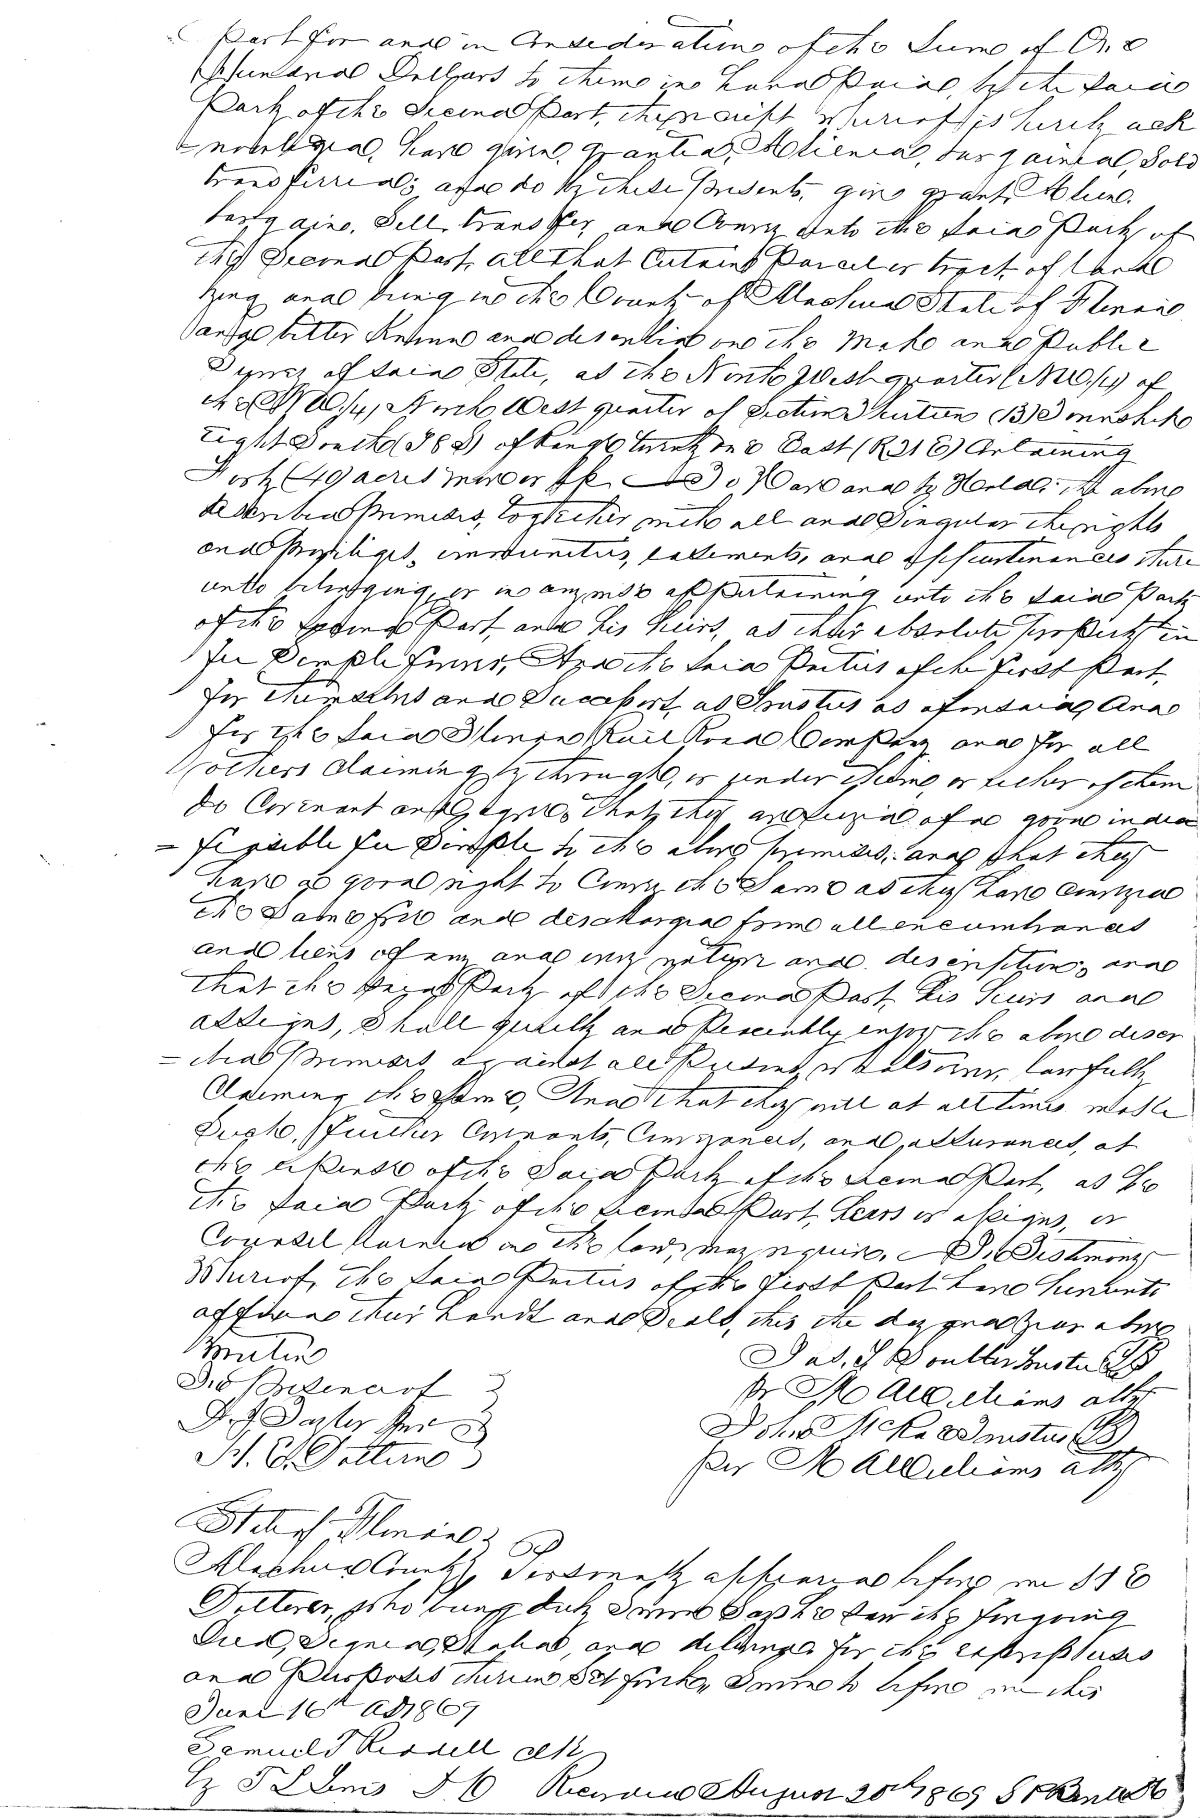 Part for and in Consideration of the Sum of One
Hundred Dollars to them in hand Paid, by the said
Party of the Second Part, the receipt whereof is hereby ack
= nowledged, have given, granted, Aliened, bargained, Sold
transferred; and do by these Presents, give grant, Alien,
bargain, Sell, transfer, and Convey unto the said Party of
the Second Part, all that Certain Parcel or tract of land
lying and being in the County of Alachua State of Florida
and better Known and described on the Map and Public
Survey of said State, as the North West quarter (NW/4) of
the (NW/4) North West quarter of Section Thirteen (13) Township
Eight South (T8S) of Range twenty one East (R21E) Containing
Forty (40) acres more or less. To Have and to Hold; the above
described Premises, together with all and Singular the rights
and Privileges, immunities, easements, and appurtenances there
unto belonging, or in anywise appertaining unto the said Party
of the Second Part, and his heirs, as their absolute property in
fee Simple forever, And the Said Parties of the first Part,
for themselves and Successors, as Trustees as aforesaid, And
for the Said Florida Rail Road Company and for all
others Claiming by through, or under them, or either of them
do Covenant and Agree, that they are seized of a good indea
= feasible fee Simple to the above premises; and that they
have a good right to Convey the Same as they have Conveyed
the Same free and discharged from all encumbrances
and liens of any and every nature and description; and
that the said Party of the Second Part, his heirs and
assigns, Shall quietly and Peaceably enjoy the above descr
= ibed Premises against all Persons whatsoever, lawfully
Claiming the Same, And that they will at all times make
Such, further Covenants, Conveyances, and assurances, at
the expense of the Said Party of the Second Part, as he
the said Party of the second Part, heirs or assigns, or
Counsel learned in the law, may require. In Testimony
Whereof, the Said Parties of the first Part have hereunto
affixed their hands and Seals, this the day and year above
written
Jas. Soutter Trustee
Pr M A Williams atty
D. J.
John McRae Trustee
H. E. Dotterer
Per M A Williams atty
State of Florida
Alachua County Personally appeared before me H E
Dotterer, who being duly Sworn Says he saw the foregoing
Deed, Signed, Sealed, and delivered for the express uses
and Purposes therein Set forth, Sworn to before me this
June 16th AD 1869
Samuel T Riddell Clk
by D C Recorded August 20th 1869